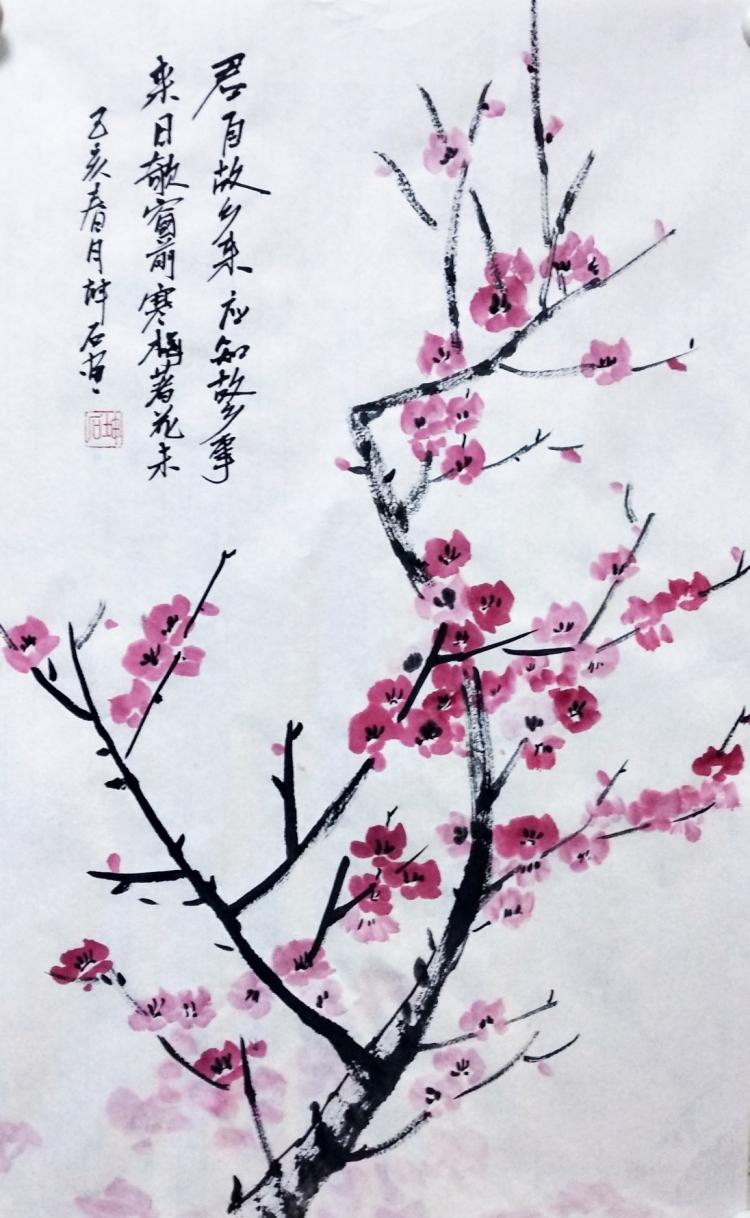 君自故乡来应知故乡事
来日绮窗前寒梅著花未
己亥春月醉石画